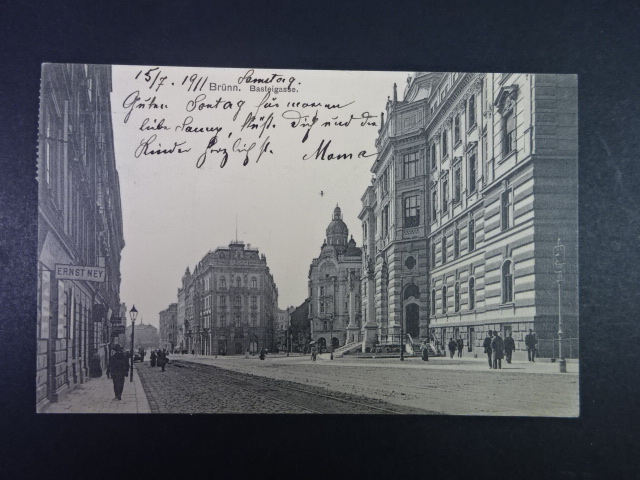 15/7. 1911 Samstag.
Brünn. Basteigasse.
Guten Sonntag für meinen
liebe Fanny, küßt Dich und die
Kinder herzlichst. Mama
ERNST NEY